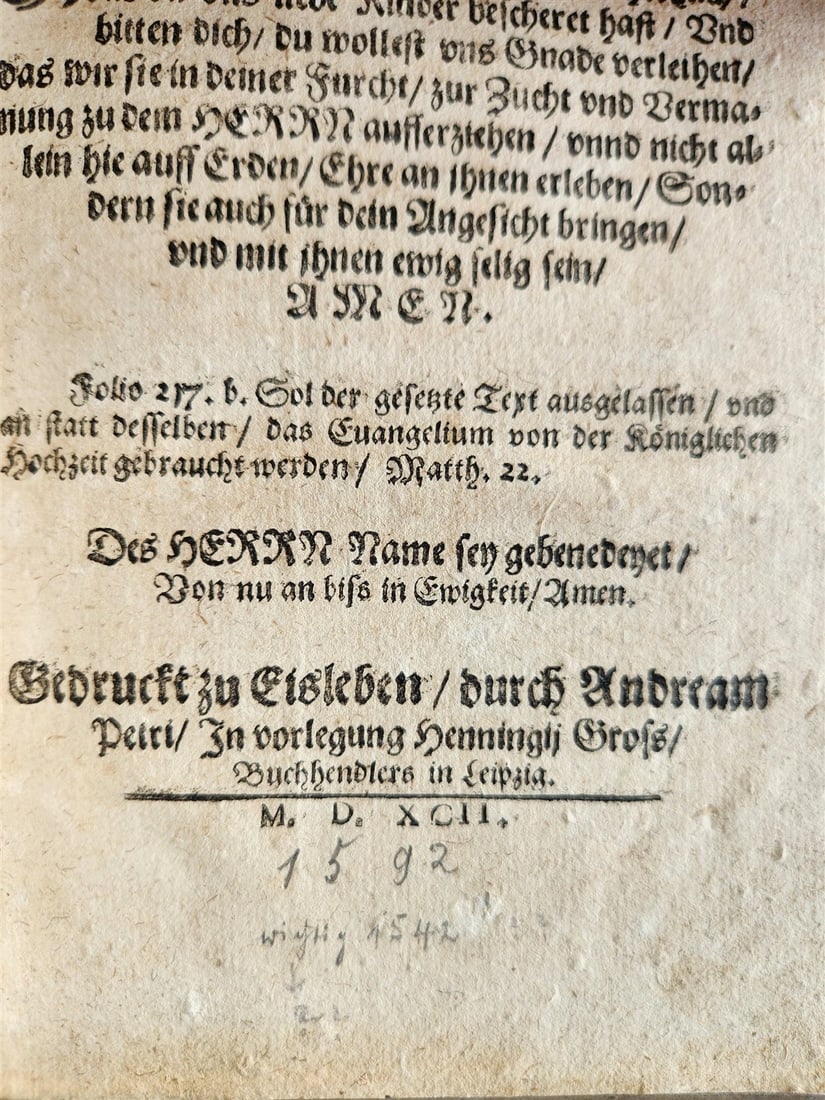 Kinder bescheret hast / Vnd
bitten dich / du wollest vns Gnade verleihen /
das wir sie in deiner Furcht / zur Zucht vnd Verma-
nung zu dem HERRN aufferziehen / vnnd nicht al-
lein hie auff Erden / Ehre an ihnen erleben / Son-
dern sie auch für dein Angesicht bringen /
vnd mit ihnen ewig selig sein /
A M E N.
Folio 217. b. Sol der gesetzte Text ausgelassen / vnd
an statt desselben / das Euangelium von der Königlichen
Hochzeit gebraucht werden / Matth. 22.
Des HERRN Name sey gebenedeyet /
Von nu an biss in Ewigkeit / Amen.
Gedruckt zu Eisleben / durch Andream
Petri / In vorlegung Henningij Gross /
Buchhendlers in Leipzig.
M. D. XCII.
1592
wichtig 1542